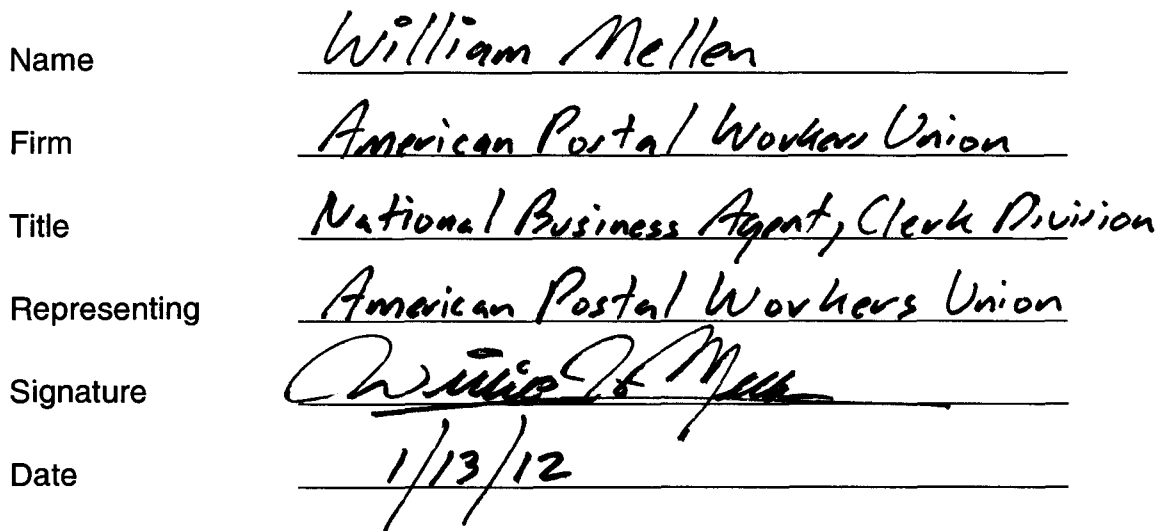 Name William Mellen
Firm American Postal Workers Union
Title National Business Agent, Clerk Division
Representing American Postal Workers Union
Signature
Date 1/13/12